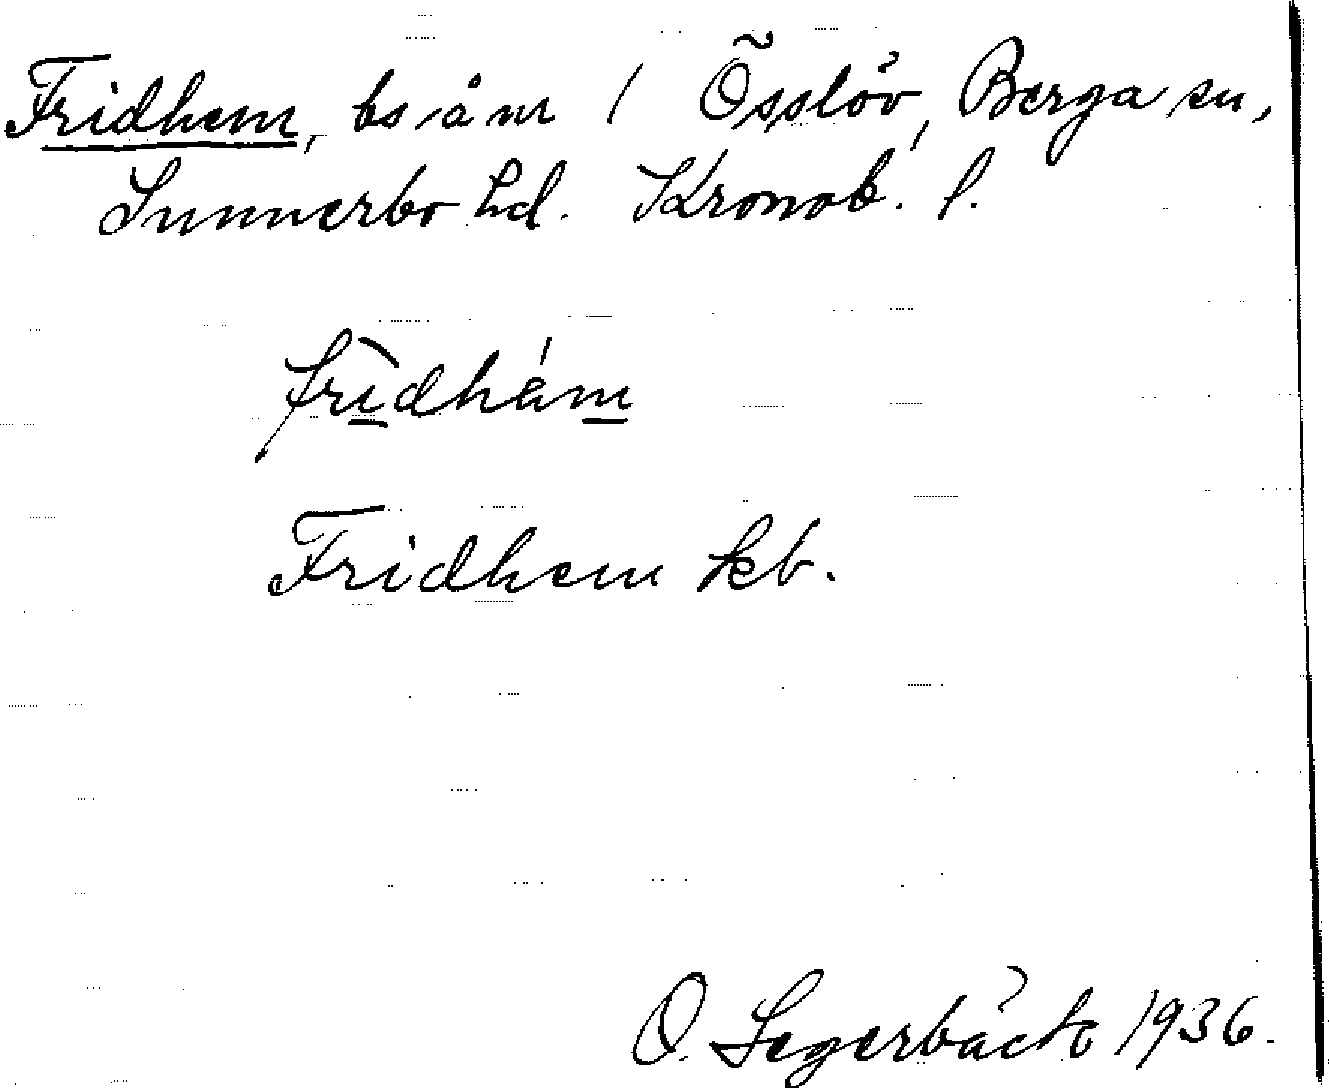 Fridhem, bs å nr 1 Össlöv, Berga sn,
Sunnerbo hd. Kronob. l.
frìdhám
Fridhem kb.
O. Segerbäck 1936.